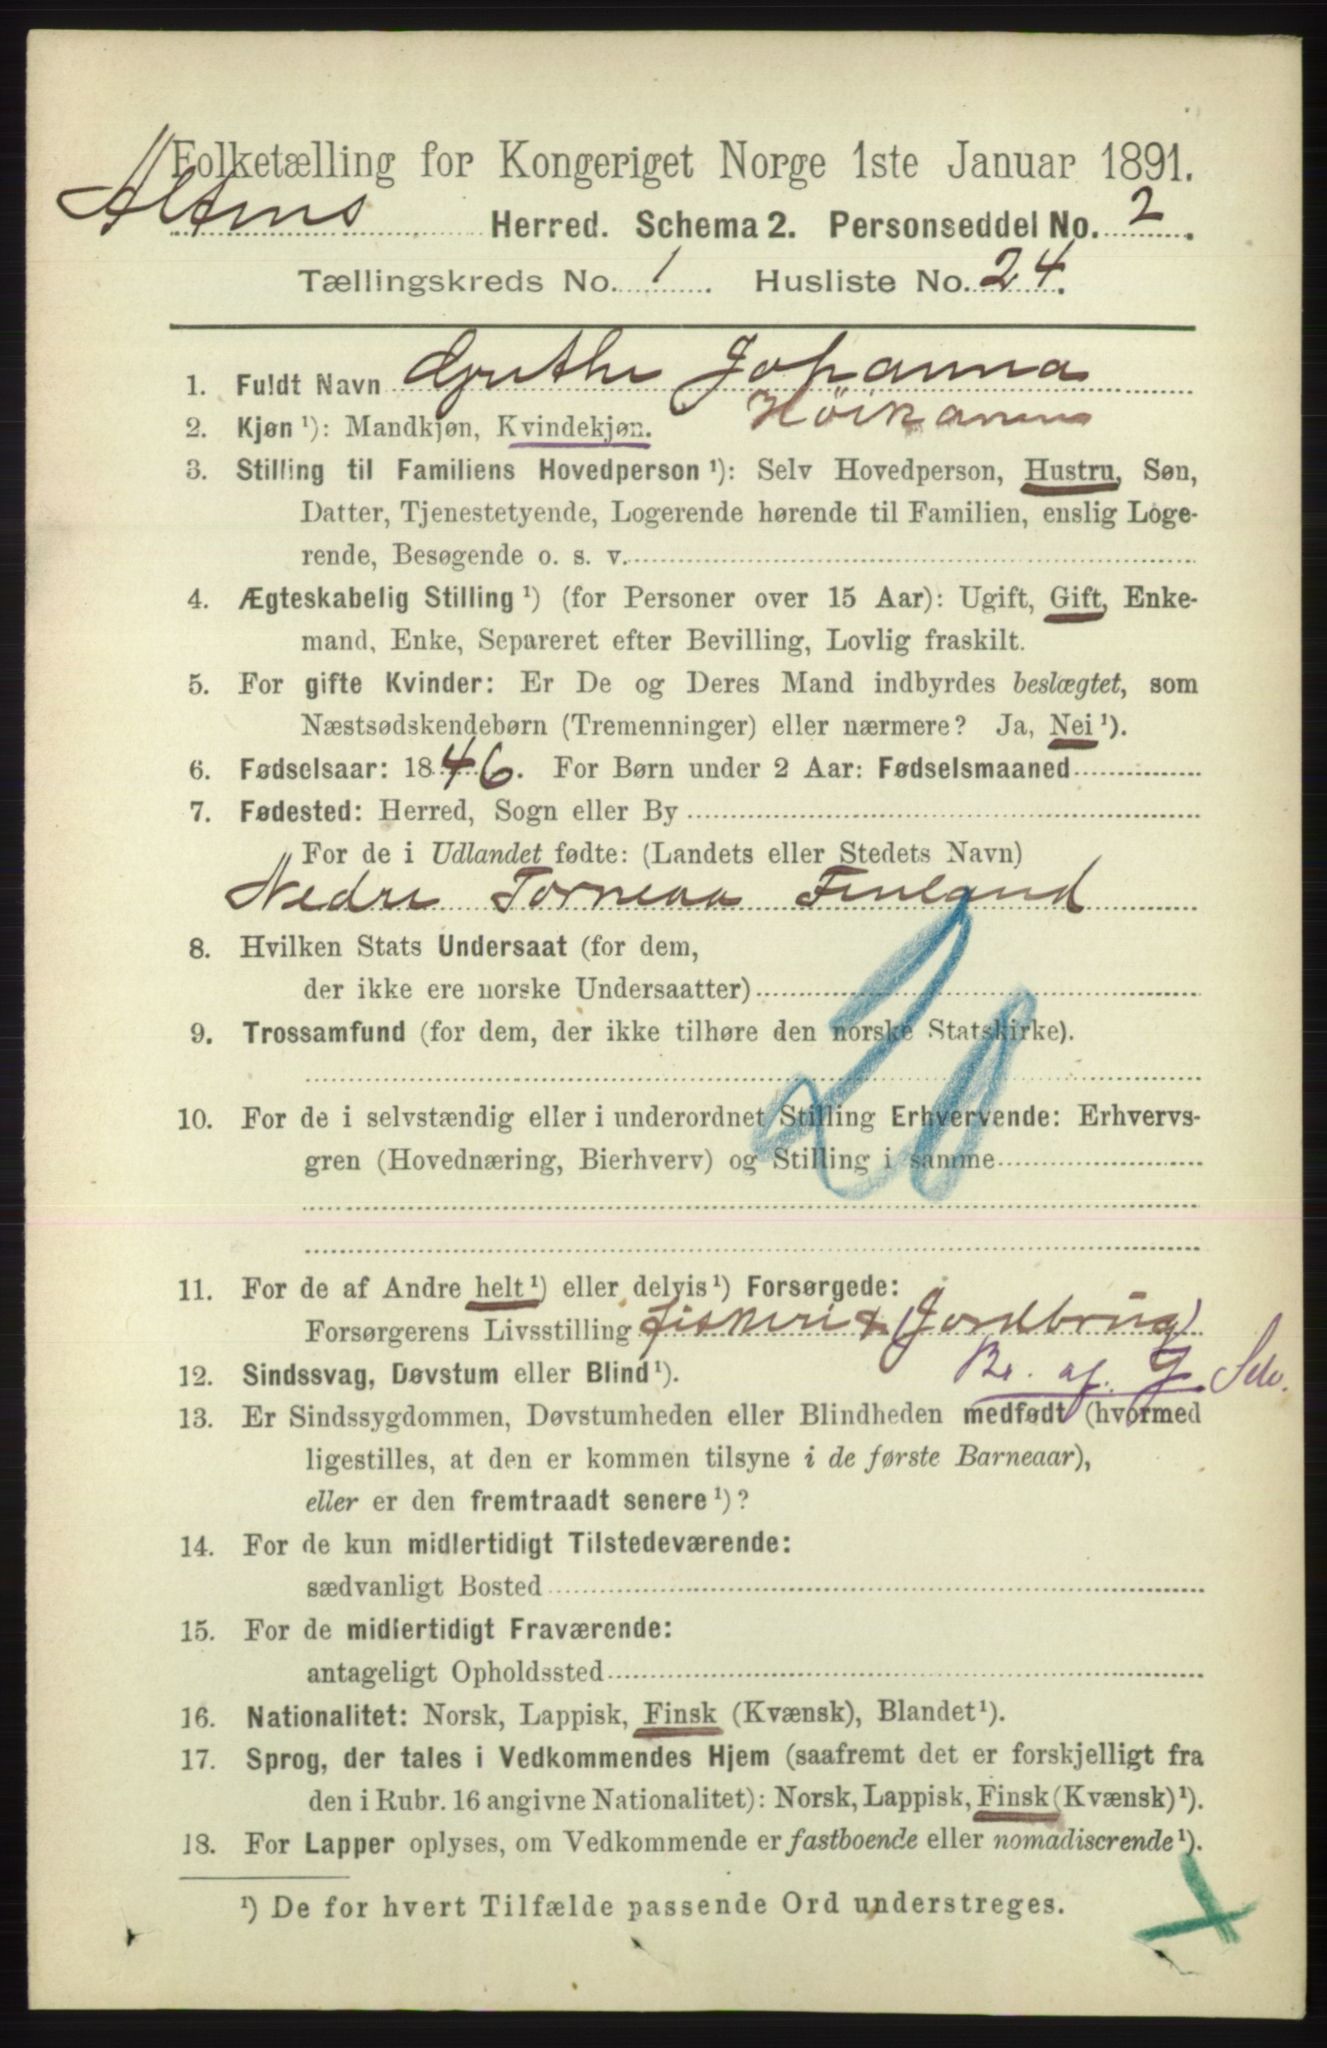 Folketælling for Kongeriget Norge 1ste Januar 1891.
Altens Herred. Schema 2. Personseddel No. 2.
Tællingskreds No. 1. Husliste No. 24.
1. Fuldt Navn Grethe Johanna
2. Kjøn ¹): Mandkjøn, Kvindekjøn.
3. Stilling til Familiens Hovedperson ¹): Selv Hovedperson, Hustru, Søn,
Datter, Tjenestetyende, Logerende hørende til Familien, enslig Loge-
rende, Besøgende o. s. v.
4. Ægteskabelig Stilling ¹) (for Personer over 15 Aar): Ugift, Gift, Enke-
mand, Enke, Separeret efter Bevilling, Lovlig fraskilt.
5. For gifte Kvinder: Er De og Deres Mand indbyrdes beslægtet, som
Næstsødskendebørn (Tremenninger) eller nærmere? Ja, Nei ¹).
6. Fødselsaar: 1846. For Børn under 2 Aar: Fødselsmaaned
7. Fødested: Herred, Sogn eller By
For de i Udlandet fødte: (Landets eller Stedets Navn)
Nedre Torneaa Finland
8. Hvilken Stats Undersaat (for dem,
der ikke ere norske Undersaatter)
9. Trossamfund (for dem, der ikke tilhøre den norske Statskirke).
10. For de i selvstændig eller i underordnet Stilling Erhvervende: Erhvervs-
gren (Hovednæring, Bierhverv) og Stilling i samme
20
11. For de af Andre helt ¹) eller delvis ¹) Forsørgede:
Forsørgerens Livsstilling fiskeri & (Jordbrug)
12. Sindssvag, Døvstum eller Blind ¹). Br. af G Selv.
13. Er Sindssygdommen, Døvstumheden eller Blindheden medfødt (hvormed
ligestilles, at den er kommen tilsyne i de første Barneaar),
eller er den fremtraadt senere ¹)?
14. For de kun midlertidigt Tilstedeværende:
sædvanligt Bosted
15. For de midlertidigt Fraværende:
antageligt Opholdssted
16. Nationalitet: Norsk, Lappisk, Finsk (Kvænsk), Blandet ¹).
17. Sprog, der tales i Vedkommendes Hjem (saafremt det er forskjelligt fra
den i Rubr. 16 angivne Nationalitet): Norsk, Lappisk, Finsk (Kvænsk) ¹).
18. For Lapper oplyses, om Vedkommende er fastboende eller nomadiserende ¹).
¹) De for hvert Tilfælde passende Ord understreges.